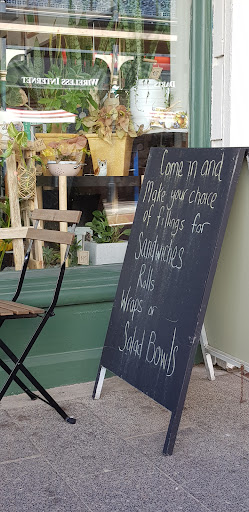 WIRELESS INTERNET
Come in and
Make your choice
of fillings for
Sandwiches
Rolls
Wraps or
Salad Bowls